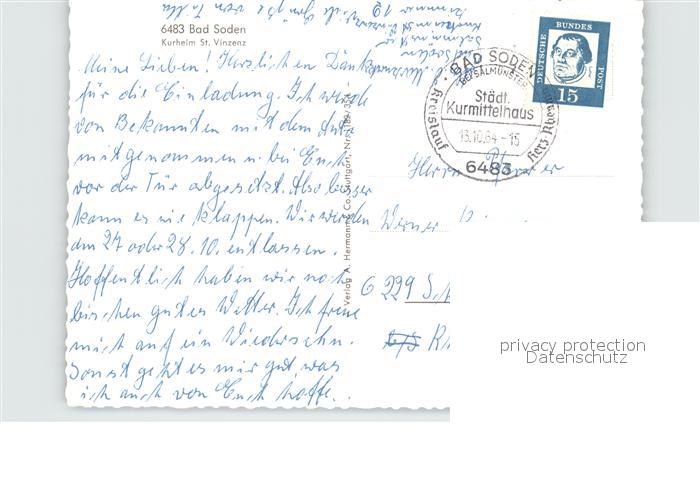 6483 Bad Soden
Kurheim St. Vinzenz
Meine Lieben! Herzlichen Dank
für die Einladung. Ich werde
von Bekannten mit dem Auto
mitgenommen u. bei Euch
vor der Tür abgesetzt. Also besser
kann es nie klappen. Wir werden
am 27 oder 28. 10. entlassen.
Hoffentlich haben wir noch
bischen gutes Wetter. Ich freue
mich auf ein Wiedersehn.
Sonst geht es mir gut, was
ich auch von Euch hoffe.
Verlag A. Hermann & Co., Stuttgart, Nr.
DEUTSCHE BUNDES POST
15
BAD SODEN
BEI SALMÜNSTER
Städt.
Kurmittelhaus
13.10.64-15
Kreislauf Herz Rheuma
6483
Herrn Pfarrer
Werner
6 229
privacy protection
Datenschutz